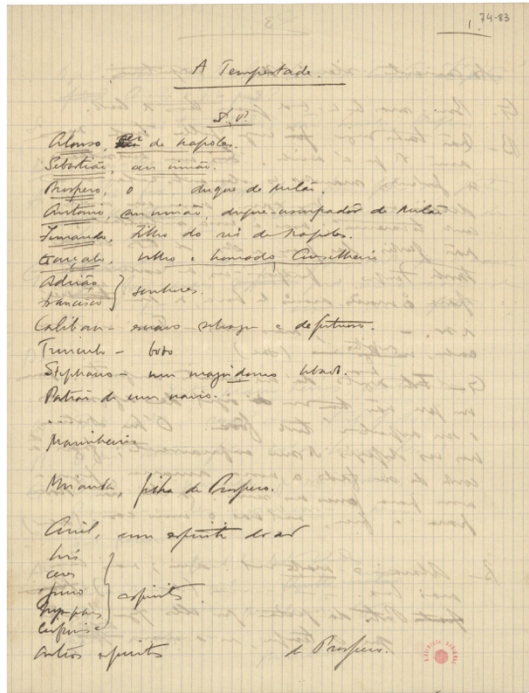 1.
74-83
A Tempestade.
D. P.
Alonso, rei de Napoles.
Sebastião, seu irmão.
Prospero, o duque de Milão.
Antonio, seu irmão, duque-usurpador de Milão
Fernando, filho do rei de Napoles.
Gonçalo, velho e honrado, Conselheiro
Adrião
Francisco } senhores.
Caliban – escravo selvagem e disforme.
Trinculo – bobo
Stephano – um mordomo bebado.
Patrão de um navio.
Marinheiros
Miranda, filha de Prospero.
Ariel, um espirito do ar
Iris
Ceres
Juno
Nymphas
Ceifeiros } espiritos.
Outros espiritos de Prospero.